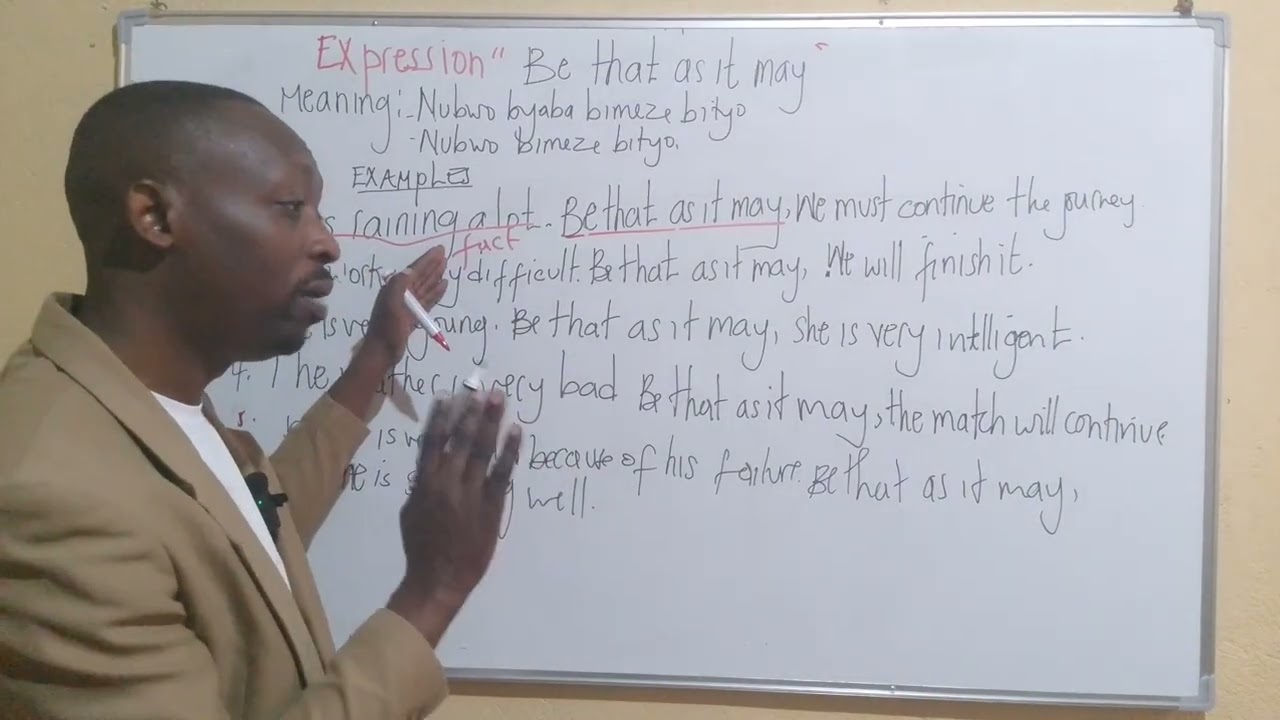 Expression " Be that as it may "
Meaning:- Nubwo byaba bimeze bityo
- Nubwo Bimeze bityo.
EXAMPLES
s raining a lot. Be that as it may, We must continue the journey.
fact
difficult. Be that as it may, We will finish it.
is very young. Be that as it may, She is very intlligent.
4. The weather is very bad Be that as it may, the match will continue
5. is because of his failure. Be that as it may,
is well.